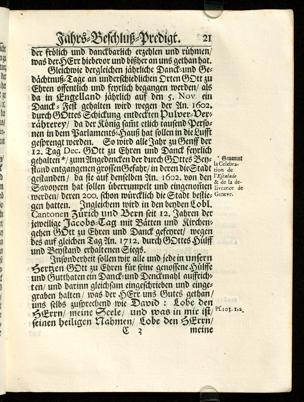 Jahrs-Beschluß-Predigt. 21
der frölich und danckbarlich erzehlen und rühmen/
was der HErr hiebevor und bißher an uns gethan hat.
Gleichwie dergleichen jährliche Danck-und Ge-
dächtnuß-Tage an underschidlichen Orten GOtt zu
Ehren offentlich und feyrlich begangen werden/ als
da in Engelland jährlich auf den 5. Nov. ein
Danck-Fest gehalten wird wegen der An. 1602.
durch GOttes Schickung endeckten Pulver-Ver-
rähterey/ da der König samt etlich tausend Perso-
nen in dem Parlaments-Hauß hat sollen in die Lufft
gesprengt werden. So wird alle Jahr zu Genff der
12. Tag Dec. GOtt zu Ehren und Danck feyrlich
gehalten */ zum Angedencken der durch GOttes Bey-
stand entgangenen grossen Gefahr/ in deren die Stadt
gestanden/ da sie auf denselben An. 1602. von den
Savoyern hat sollen überrumpelt und eingenommen
werden/ deren 200. schon würcklich die Stadt bestie-
gen hatten. Ingleichem wird in den beyden Lobl.
Cantonen Zürich und Bern seit 12. Jahren der
jeweilige Jacobs-Tag mit Bätten und Kirchen-
gehen GOtt zu Ehren und Danck gefeyret/ wegen
des auf gleichen Tag An. 1712. durch GOttes Hülff
und Beystand erhaltenen Siegs.
Insonderheit sollen wir alle und jede in unsern
Hertzen GOtt zu Ehren für seine genossene Hülffe
und Gutthaten ein Danck-und Denckmahl aufrich-
ten/ und darinn gleichsam eingeschrieben und einge-
graben halten/ was der HErr uns Gutes gethan/
uns selbs zusprechend wie David: Lobe den
HErrn/ meine Seele/ und was in mir ist/
seinen heiligen Nahmen/ Lobe den HErrn/
C 3 meine
* Genannt
la Celebra-
tion de
l'Escalade
& de la de-
livrance de
Geneve.
Ps. 103. 1.2.